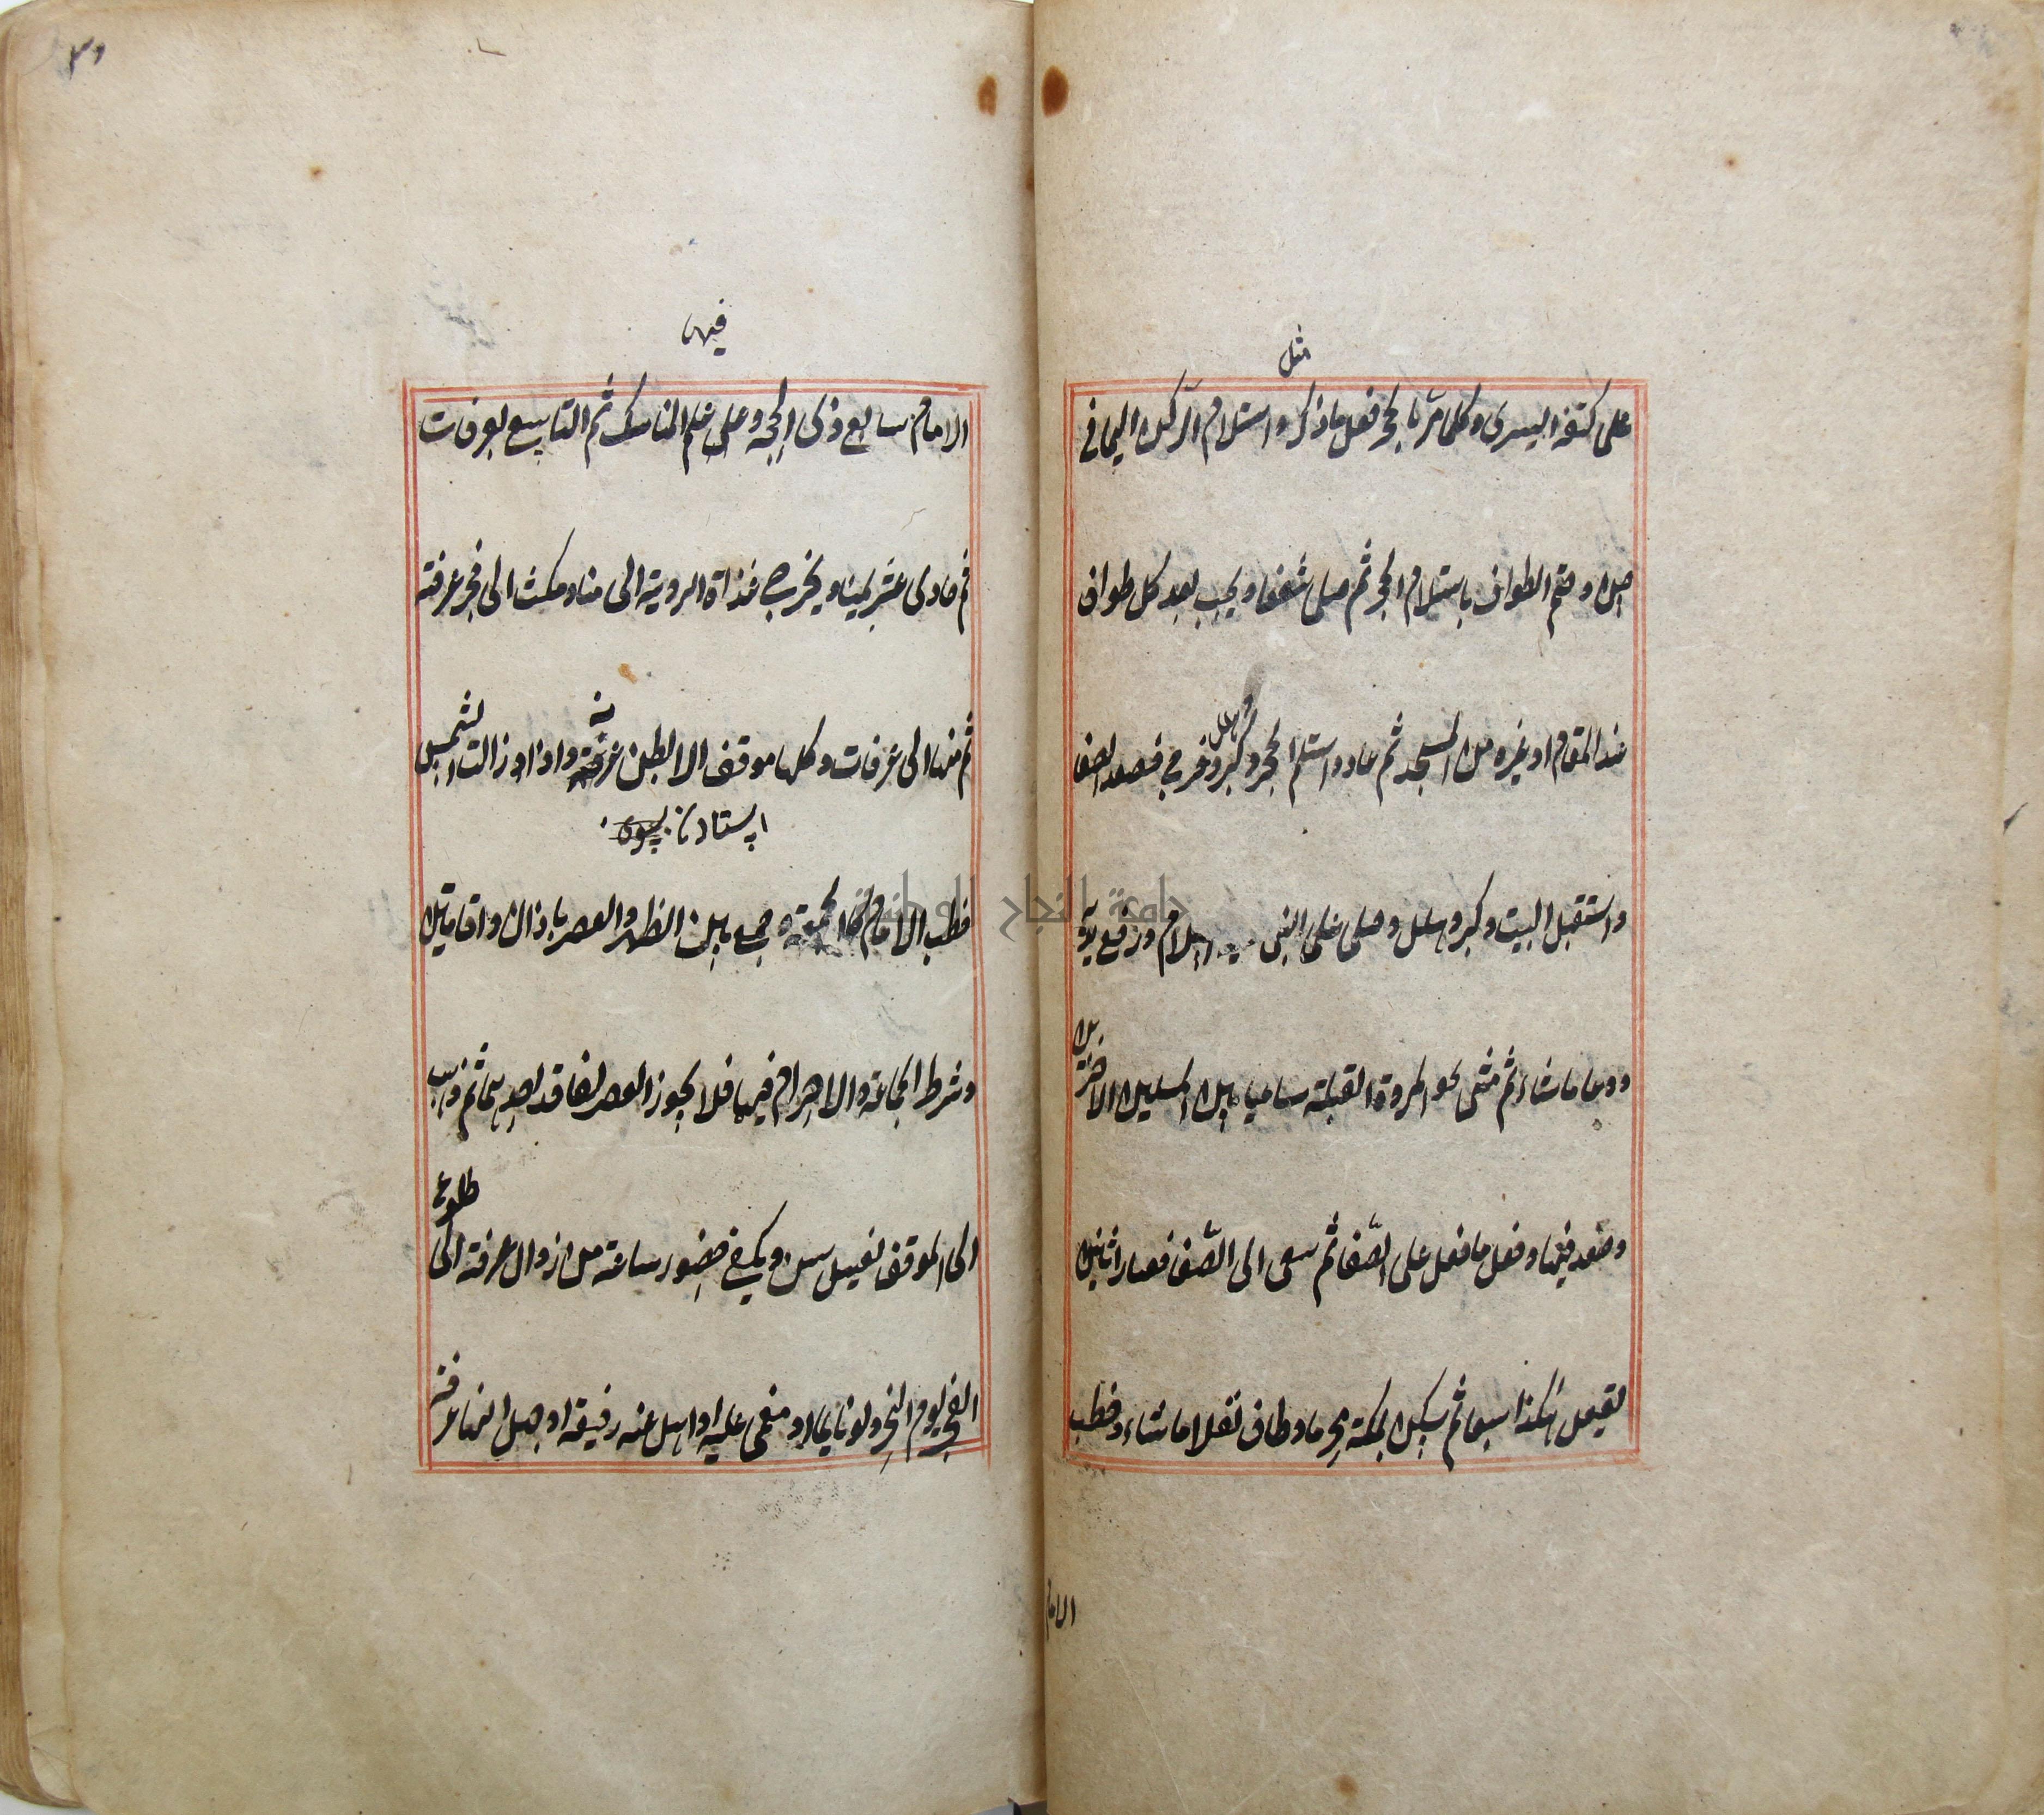 مثل
على كتفه اليسرى وكلما مرّ بالحجر فعل ما ذكر واستلام الركن اليماني
حسن وختم الطواف باستلام الحجر ثم صلى شفعا ويجب بعد كل طواف
عند المقام او غيره من المسجد ثم عاد واستلم الحجر وكبر وهلل وخرج فصعد الصفا
واستقبل البيت وكبر وهلل وصلى على النبي عليه السلام ورفع يديه
ودعا ما شاء ثم مشى نحو المروة القبلة ساعيا بين الميلين الاخضرين
وصعد فيها وفعل ما فعل على الصّفا ثم سعى الى الصّفا فصار اثنين
يفعل هكذا سبعا ثم سكن بمكة محرما وطاف نفلا ما شاء وخطب
الامام
٣٥
فيها
الامام سابع ذى الحجه وعلم المناسك ثم التاسع بعرفات
ثم حادى عشر بمنا ويخرج غداة الروية الى منا ومكث الى فجر عرفته
ثم منها الى عرفات وكلها موقف الا بطن عرنة واذا زالت الشمس
ايستادن
خطب الامام كالجمعة وجمع بين الظهر والعصر باذان واقامتين
وشرط الجماعة والاحرام فيهما فلا يجوز العصر لفاقد احديهما ثم ذهب
الى الموقف بغسل سن ويكفي حضور ساعة من زوال عرفة الى طلوع
الفجر يوم النحر ولو نايما او مغمى عليه او اهل عنه رفيقه او جهل انها عرفته
جامعة النجاح الوطنية